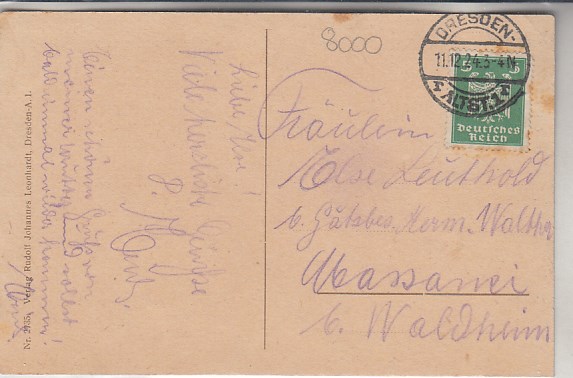 8000
DRESDEN-
11.12.24.3-4N.
* ALTST.1 *
5 5
Deutsches
Reich
Fräulein
Else Leuthold
b. Gutsbes. Herm. Walther
Massanei
b. Waldheim
Liebe Else!
Viele herzliche Grüße
Einen schönen Gruß von
meiner Mutter und sollst
bald einmal wieder kommen!
Nr. 2955 Verlag Rudolf Johannes Leonhardt, Dresden-A.1.